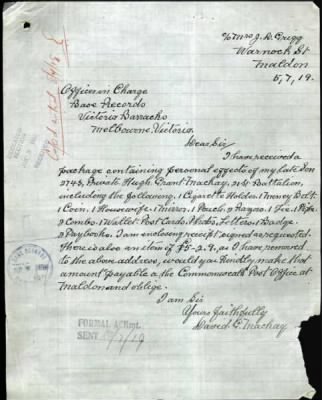 c/o Mrs J. D. Grigg
Warnock St
Maldon
5, 7, 19.
Officer in Charge
Base Records
Victoria Barracks
Melbourne, Victoria.
Dear Sir
I have received a
package containing personal effects of my late Son
2743, Private Hugh Grant Mackay, 21st Battalion,
including the following. 1 Cigarette Holder. 1 Money Belt.
1 Coin. 1 Housewife. 1 Mirror. 1 Pouch. 2 Razors. 1 Pipe.
2 Combs. 1 Wallet. Post Cards, Photos, Letters. 1 Badge.
2 Paybooks. I am enclosing receipt signed as requested.
There is also an item of as I have removed
to the above address, would you Kindly make that
amount payable at the Commonwealth Post Office at
Maldon and oblige.
I am Sir
Yours faithfully
David C. Mackay
FORMAL ACKmt.
SENT /7/19